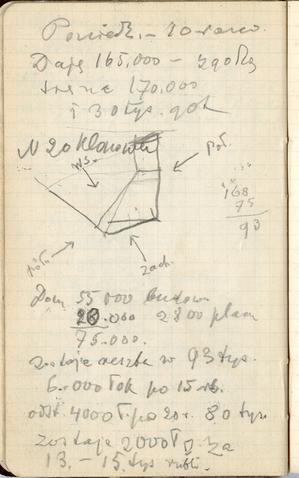 Poniedz. – 10 rano.
Daję 165.000 – zgodzą
się na 170.000
i 30 tys. got
N 20 Klonowa
ws.
poł.
półn.
zach.
168
75
93
Dom 55 000 budowa
20.000 2800 plac
75.000.
zostaje reszta w 93 tys.
6.000 łok po 15 rb.
4000 ł. po 20 r. 80 tys.
zostaje 2000 ł □ za
13. – 15 tys rubli.